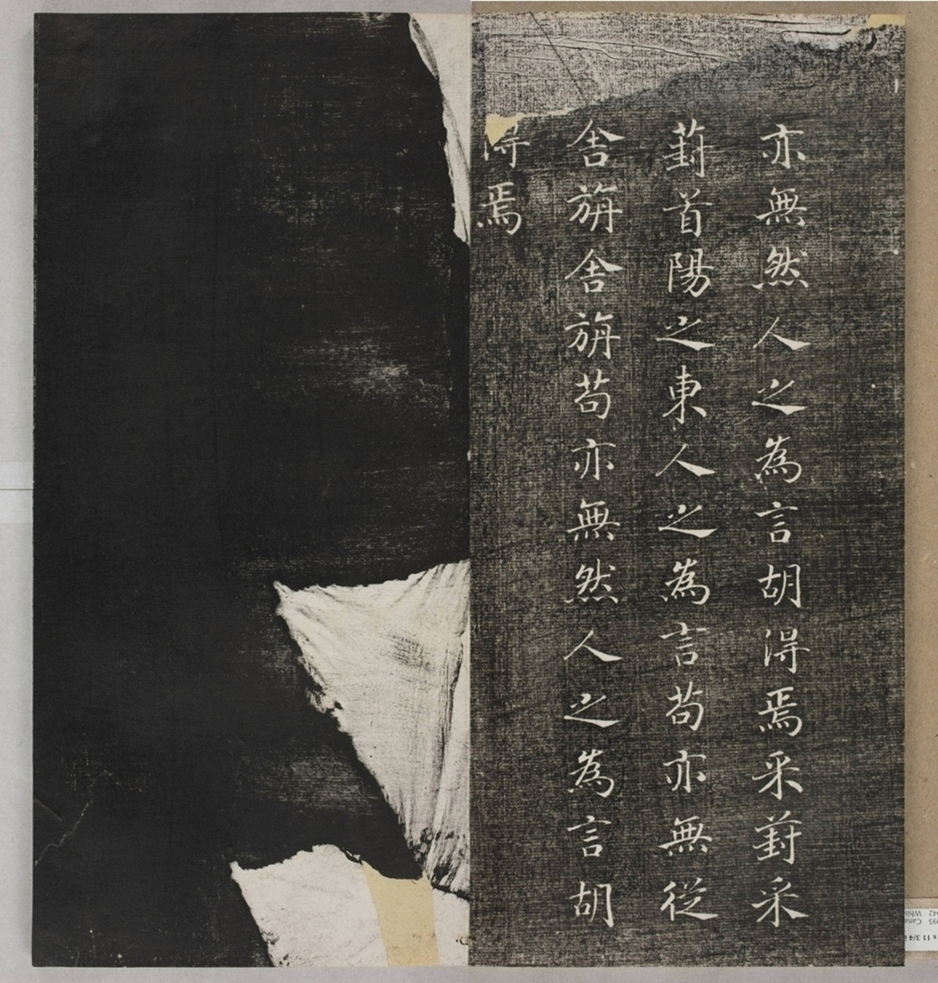 亦無然人之為言胡得焉采葑采
葑首陽之東人之為言苟亦無從
舍旃舍旃苟亦無然人之為言胡
得焉